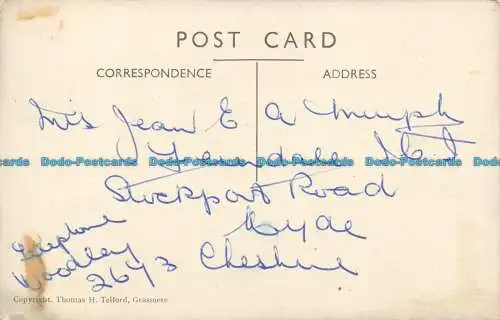 POST CARD
CORRESPONDENCE
ADDRESS
Mrs Jean E A
Dodo-Postcards Dodo-Postcards Dodo-Postcards Dodo-Postcards Dodo-Postcards
Stockport Road
Hyde
Cheshire
Telephone
Woodley
2673
Copyright. Thomas H. Telford, Grasmere